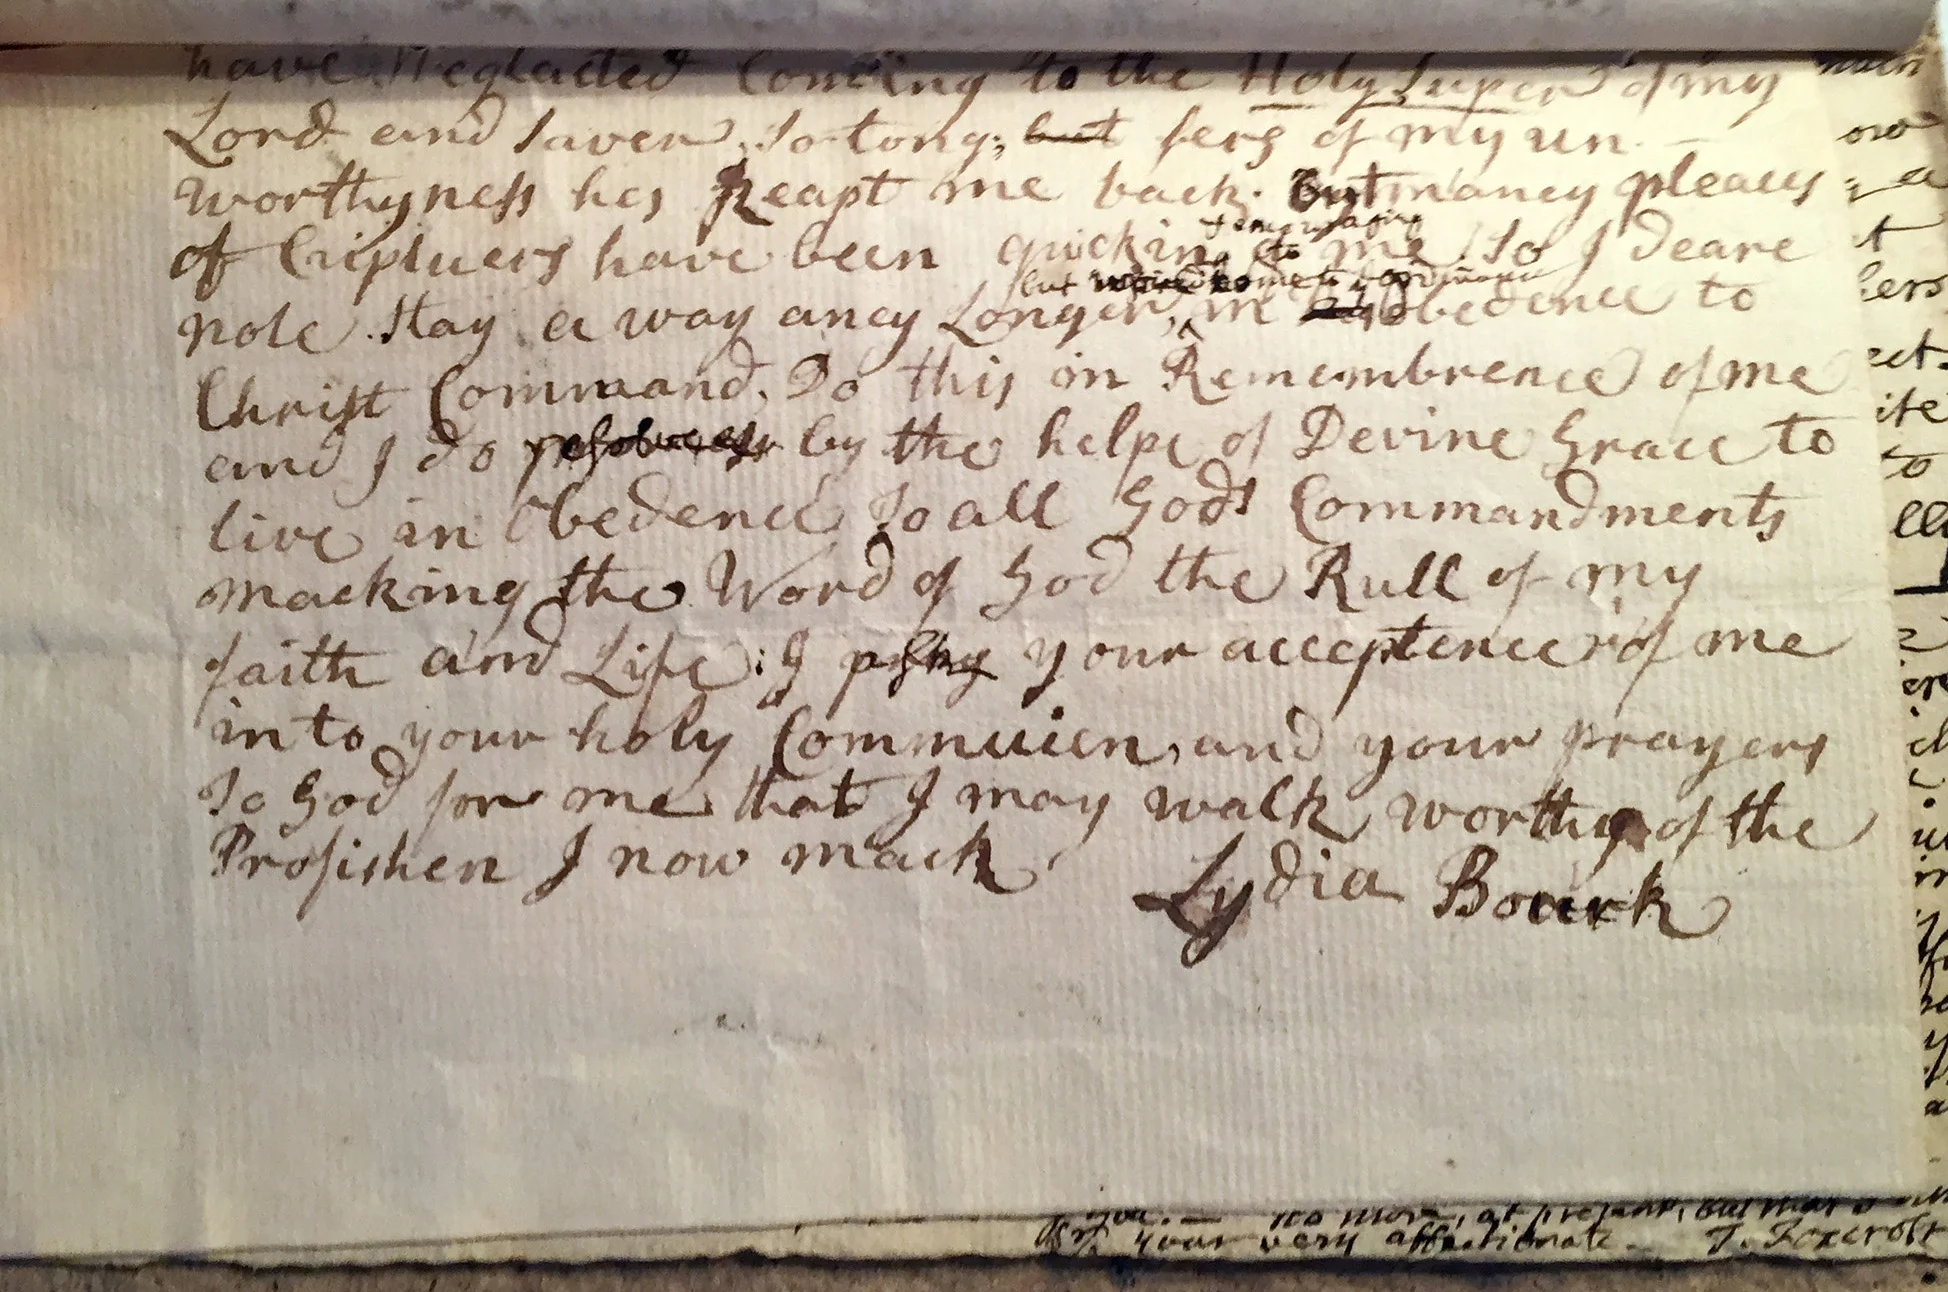 have Neglacted Coming to the Holy Super of my
Lord and Saver, So long; but fers of my un-
worthyness has Keapt me back. But maney pleaces
of Criptuers have been quickin to me So I deare
+ encuraging
note Stay a way aney Longer, in obedence to
but
Christ Command, Do this in Remembrence of me
and I do resolve by the helpe of Devine Grace to
live in Obedence To all Gods Commandments
macking the Word of God the Rull of my
faith and Life; I pray your acceptence of me
in to your holy Commuien, and your prayers
To God for me that I may walk worthy of the
Profishen I now mack
Lydia Bourk
you. — no more, at present, but that
your very affectionate. T. Foxcroft